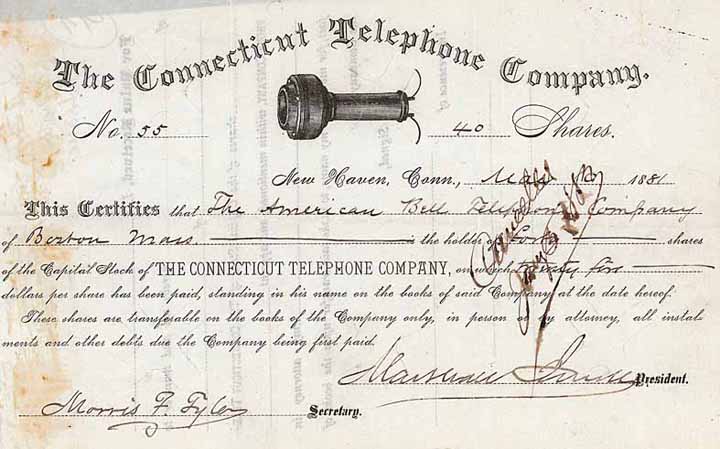 The Connecticut Telephone Company.
No. 55 40 Shares.
New Haven, Conn., 1881
This Certifies that The American Bell Telephone Company
of Boston Mass. is the holder of Forty shares
of the Capital Stock of THE CONNECTICUT TELEPHONE COMPANY, on which twenty five
dollars per share has been paid, standing in his name on the books of said Company at the date hereof.
These shares are transferable on the books of the Company only, in person or by attorney, all instal-
ments and other debts due the Company being first paid.
Marshall Jewell President.
Morris F. Tyler Secretary.
Cancelled